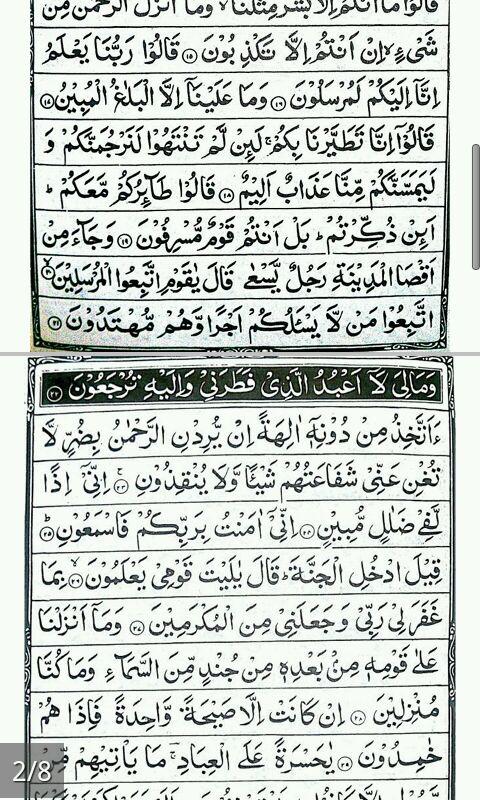 قَالُوْا مَاۤ اَنْتُمْ اِلَّا بَشَرٌ مِّثْلُنَا ۙ وَمَاۤ اَنْزَلَ الرَّحْمٰنُ مِنْ
شَىْءٍ ۙ اِنْ اَنْتُمْ اِلَّا تَكْذِبُوْنَ ﴿۱۵﴾ قَالُوْا رَبُّنَا يَعْلَمُ
اِنَّاۤ اِلَيْكُمْ لَمُرْسَلُوْنَ ﴿۱۶﴾ وَمَا عَلَيْنَاۤ اِلَّا الْبَلٰغُ الْمُبِيْنُ ﴿۱۷﴾
قَالُوْۤا اِنَّا تَطَيَّرْنَا بِكُمْ ۚ لَئِنْ لَّمْ تَنْتَهُوْا لَنَرْجُمَنَّكُمْ وَ
لَيَمَسَّنَّكُمْ مِّنَّا عَذَابٌ اَلِيْمٌ ﴿۱۸﴾ قَالُوْا طَآئِرُكُمْ مَّعَكُمْ ؕ
اَئِنْ ذُكِّرْتُمْ ؕ بَلْ اَنْتُمْ قَوْمٌ مُّسْرِفُوْنَ ﴿۱۹﴾ وَجَآءَ مِنْ
اَقْصَا الْمَدِيْنَةِ رَجُلٌ يَّسْعٰى قَالَ يٰقَوْمِ اتَّبِعُوا الْمُرْسَلِيْنَ ۙ﴿۲۰﴾
اتَّبِعُوْا مَنْ لَّا يَسْئَلُكُمْ اَجْرًا وَّهُمْ مُّهْتَدُوْنَ ﴿۲۱﴾
وَمَا لِىَ لَاۤ اَعْبُدُ الَّذِىْ فَطَرَنِىْ وَاِلَيْهِ تُرْجَعُوْنَ ﴿۲۲﴾
ءَاَتَّخِذُ مِنْ دُوْنِهٖۤ اٰلِهَةً اِنْ يُّرِدْنِ الرَّحْمٰنُ بِضُرٍّ لَّا
تُغْنِ عَنِّىْ شَفَاعَتُهُمْ شَيْئًا وَّلَا يُنْقِذُوْنِ ۚ﴿۲۳﴾ اِنِّىْۤ اِذًا
لَّفِىْ ضَلٰلٍ مُّبِيْنٍ ﴿۲۴﴾ اِنِّىْۤ اٰمَنْتُ بِرَبِّكُمْ فَاسْمَعُوْنِ ؕ﴿۲۵﴾
قِيْلَ ادْخُلِ الْجَنَّةَ ؕ قَالَ يٰلَيْتَ قَوْمِىْ يَعْلَمُوْنَ ۙ﴿۲۶﴾ بِمَا
غَفَرَ لِىْ رَبِّىْ وَجَعَلَنِىْ مِنَ الْمُكْرَمِيْنَ ﴿۲۷﴾ وَمَاۤ اَنْزَلْنَا
عَلٰى قَوْمِهٖ مِنْۢ بَعْدِهٖ مِنْ جُنْدٍ مِّنَ السَّمَآءِ وَمَا كُنَّا
مُنْزِلِيْنَ ﴿۲۸﴾ اِنْ كَانَتْ اِلَّا صَيْحَةً وَّاحِدَةً فَاِذَا هُمْ
خٰمِدُوْنَ ﴿۲۹﴾ يٰحَسْرَةً عَلَى الْعِبَادِ ۚ مَا يَاْتِيْهِمْ مِّنْ
2/8